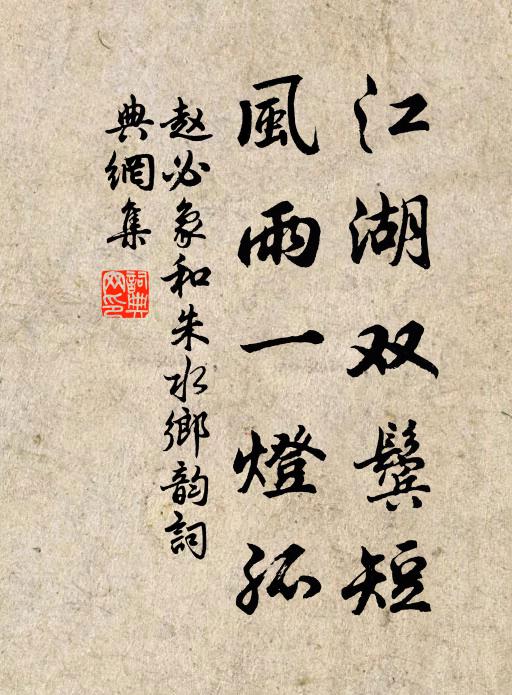 江湖双鬓短
風雨一燈孤
赵必象和朱水鄉韵詞
典網集
詞典网印